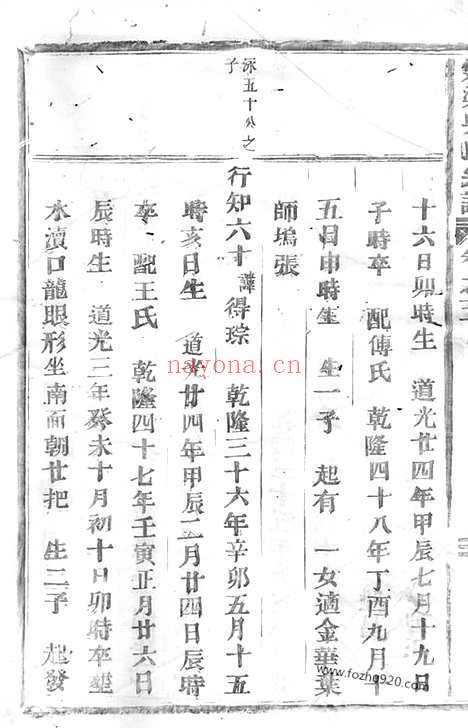 十六日卯時生 道光廿四年甲辰七月十九日
子時卒 配傅氏 乾隆四十八年丁酉九月十
五日申時生 生一子 起有 一女適金華葉
師塢張
泳五十公之
子
行知六十 諱得琮 乾隆三十六年辛卯五月十五
時亥日生 道光廿四年甲辰二月廿四日辰時
卒 配王氏 乾隆四十七年壬寅正月廿六日
辰時生 道光三年癸未十月初十日卯時卒塟
水瀆口龍眼形坐南面朝廿把 生二子 起發
nayona.cn
www.fozhu920.com